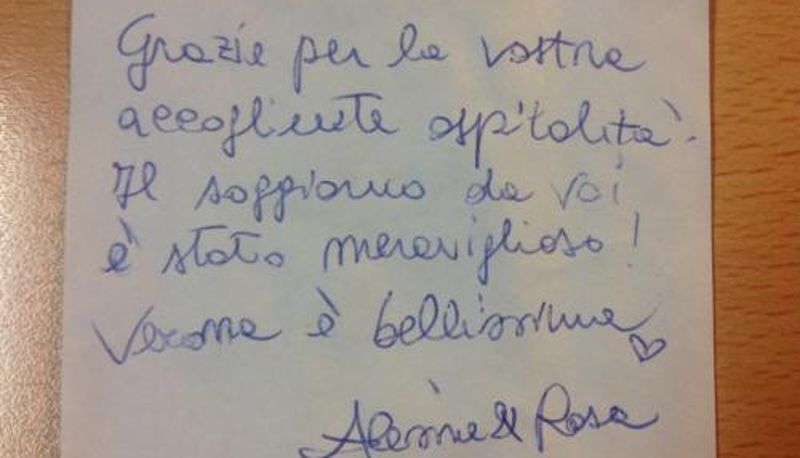 Grazie per la vostra
accogliente ospitalità.
Il soggiorno da voi
è stato meraviglioso!
Verona è bellissima
& Rosa